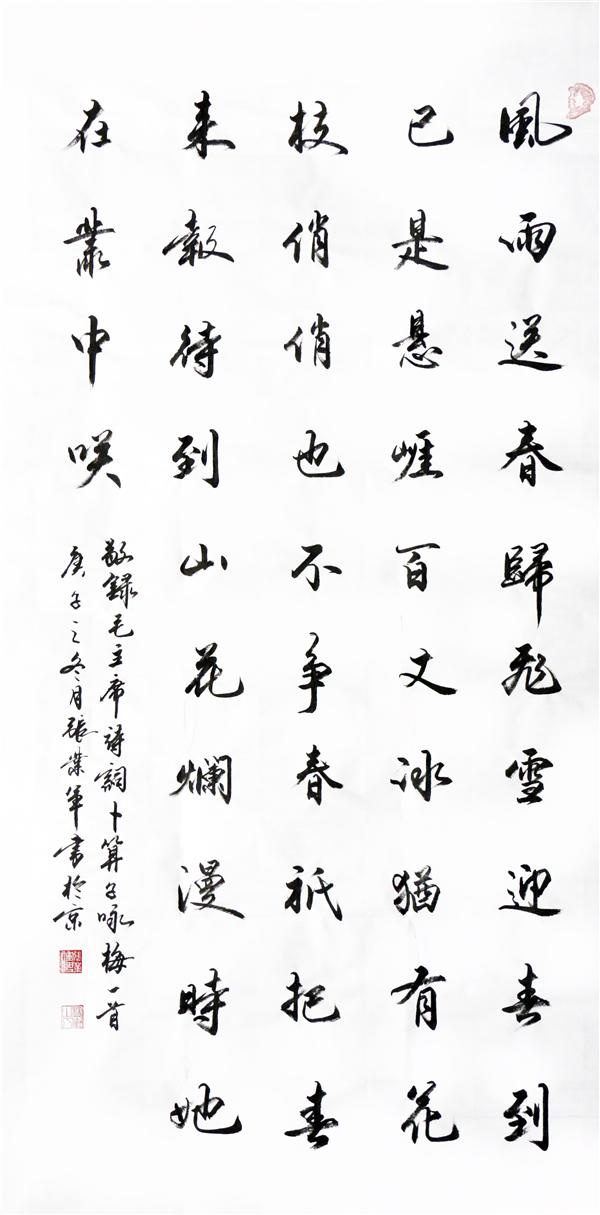 風雨送春歸飛雪迎春到
已是悬崕百丈冰猶有花
枝俏俏也不争春衹把春
来報待到山花爛漫時她
在叢中咲
敬録毛主席詩詞卜算子咏梅一首
庚子之冬月張業軍書於京